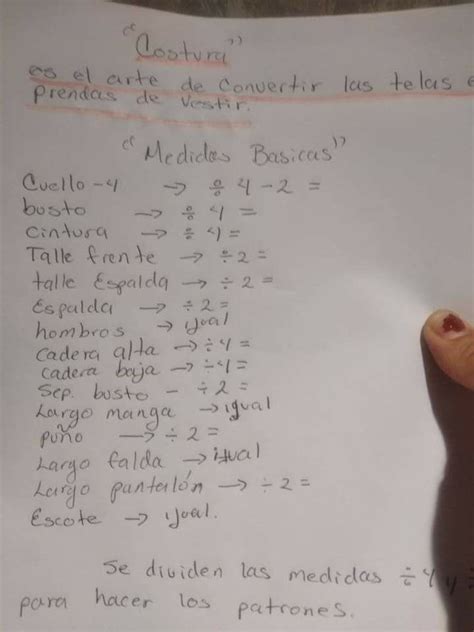 "Costura"
es el arte de convertir las telas e
prendas de vestir.
"Medidas Basicas"
Cuello - 4 → ÷ 4 - 2 =
busto → ÷ 4 =
cintura → ÷ 4 =
Talle frente → ÷ 2 =
talle Espalda → ÷ 2 =
Espalda → ÷ 2 =
hombros → igual
cadera alta → ÷ 4 =
cadera baja → ÷ 4 =
Sep. busto - ÷ 2 =
Largo manga → igual
puño → ÷ 2 =
Largo falda → igual
Largo pantalón → ÷ 2 =
Escote → igual.
Se dividen las medidas ÷ 4 y ÷
para hacer los patrones.